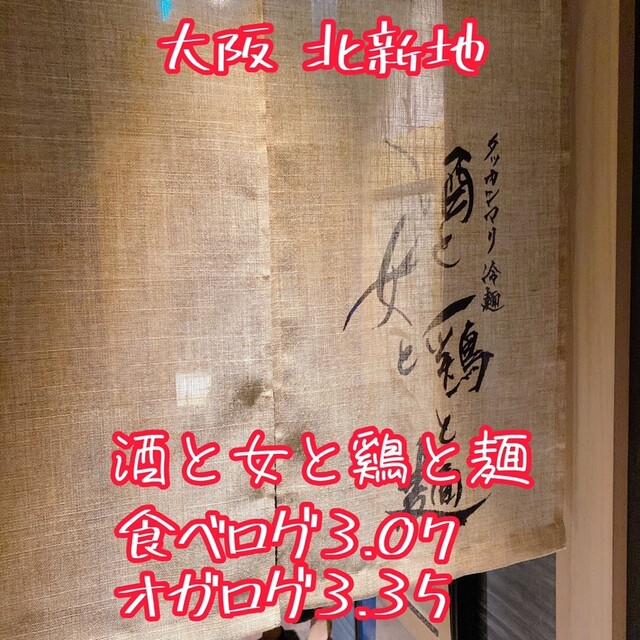 大阪 北新地
タッカンマリ 冷麺
酒と鶏と麺
女と
酒と女と鶏と麺
食べログ3.07
オガログ3.35